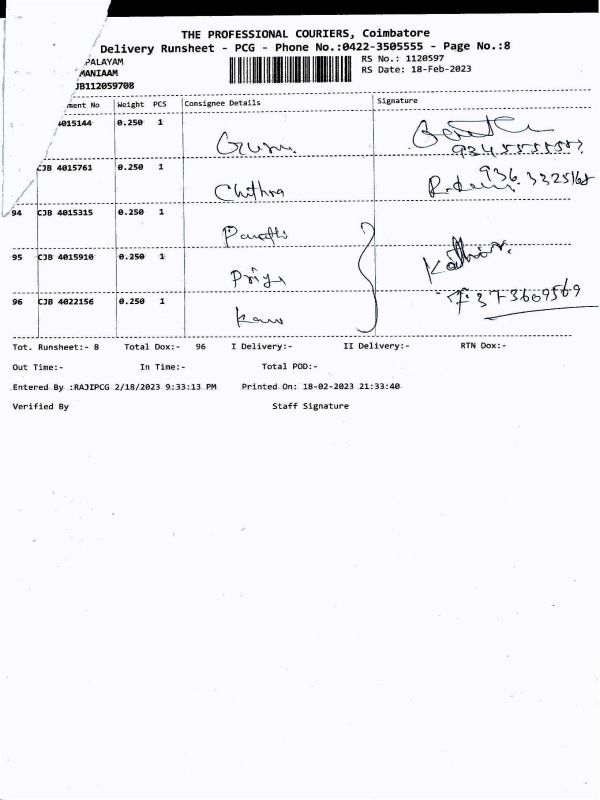 THE PROFESSIONAL COURIERS, Coimbatore
Delivery Runsheet - PCG - Phone No.:0422-3505555 - Page No.:8
PALAYAM
RS No.: 1120597
MANIAAM
RS Date: 18-Feb-2023
JB112059708
ment No Weight PCS Consignee Details Signature
4015144 0.250 1
Guru.
CJB 4015761 0.250 1
Chithra
936 3325168
94 CJB 4015315 0.250 1
Parvathi
95 CJB 4015910 0.250 1
Priya
Kathir.
96 CJB 4022156 0.250 1
7373609569
Tot. Runsheet:- 8 Total Dox:- 96 I Delivery:- II Delivery:- RTN Dox:-
Out Time:- In Time:- Total POD:-
Entered By :RAJIPCG 2/18/2023 9:33:13 PM Printed On: 18-02-2023 21:33:40
Verified By Staff Signature